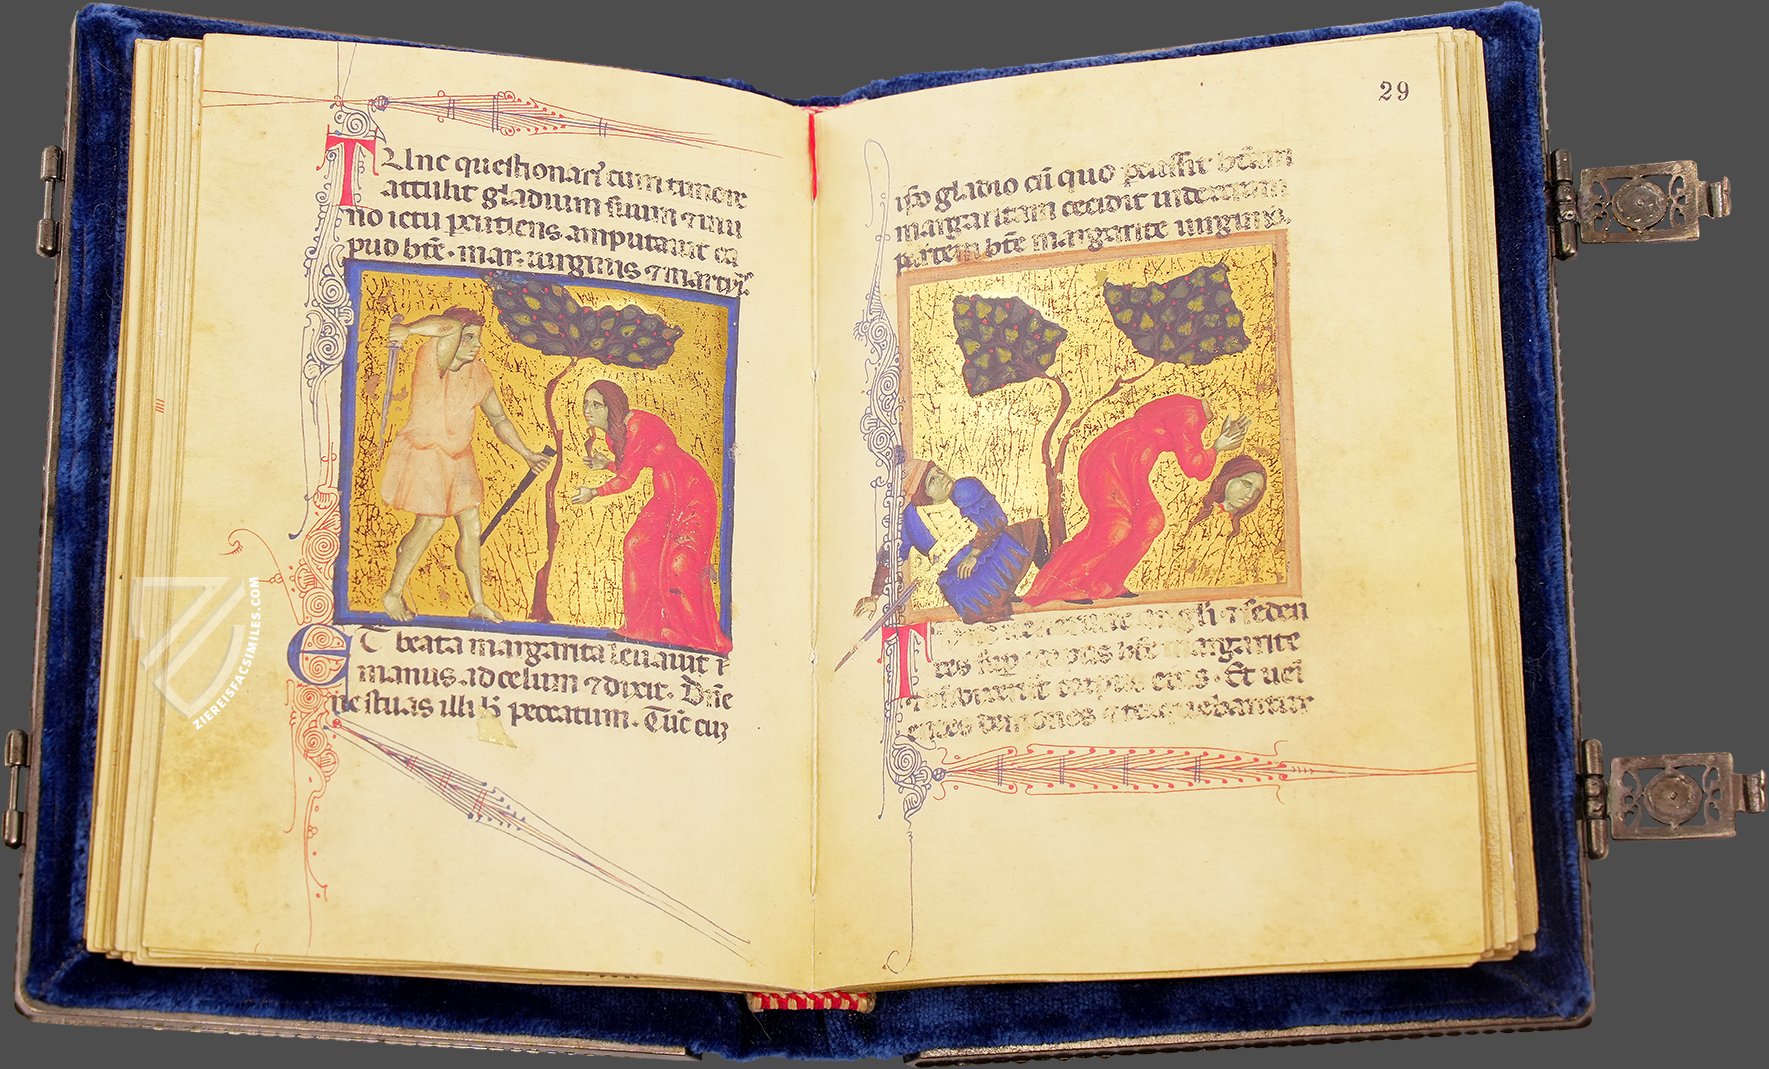 TUnc questionari cum timore
attulit gladium suum ⁊ in u
no ictu percutiens amputauit ca
pud bt̄e · mar. uirginis ⁊ martyr̄.
ET beata margarita leuauit
manus ad celum ⁊ dixit. Dn̄e
ne stuas illi h̄ peccatum. Tūc cuʒ
29
ip̄o gladio cū quo p̄cussit bt̄am
margaritam cecidit in dexteram
partem bt̄e margarite uirginis.
angl̄i ⁊ seden
tes sup bt̄e margarite
corpus eius. Et ueī
demones ⁊ torquebantur
ZIEREISFACSIMILES.COM